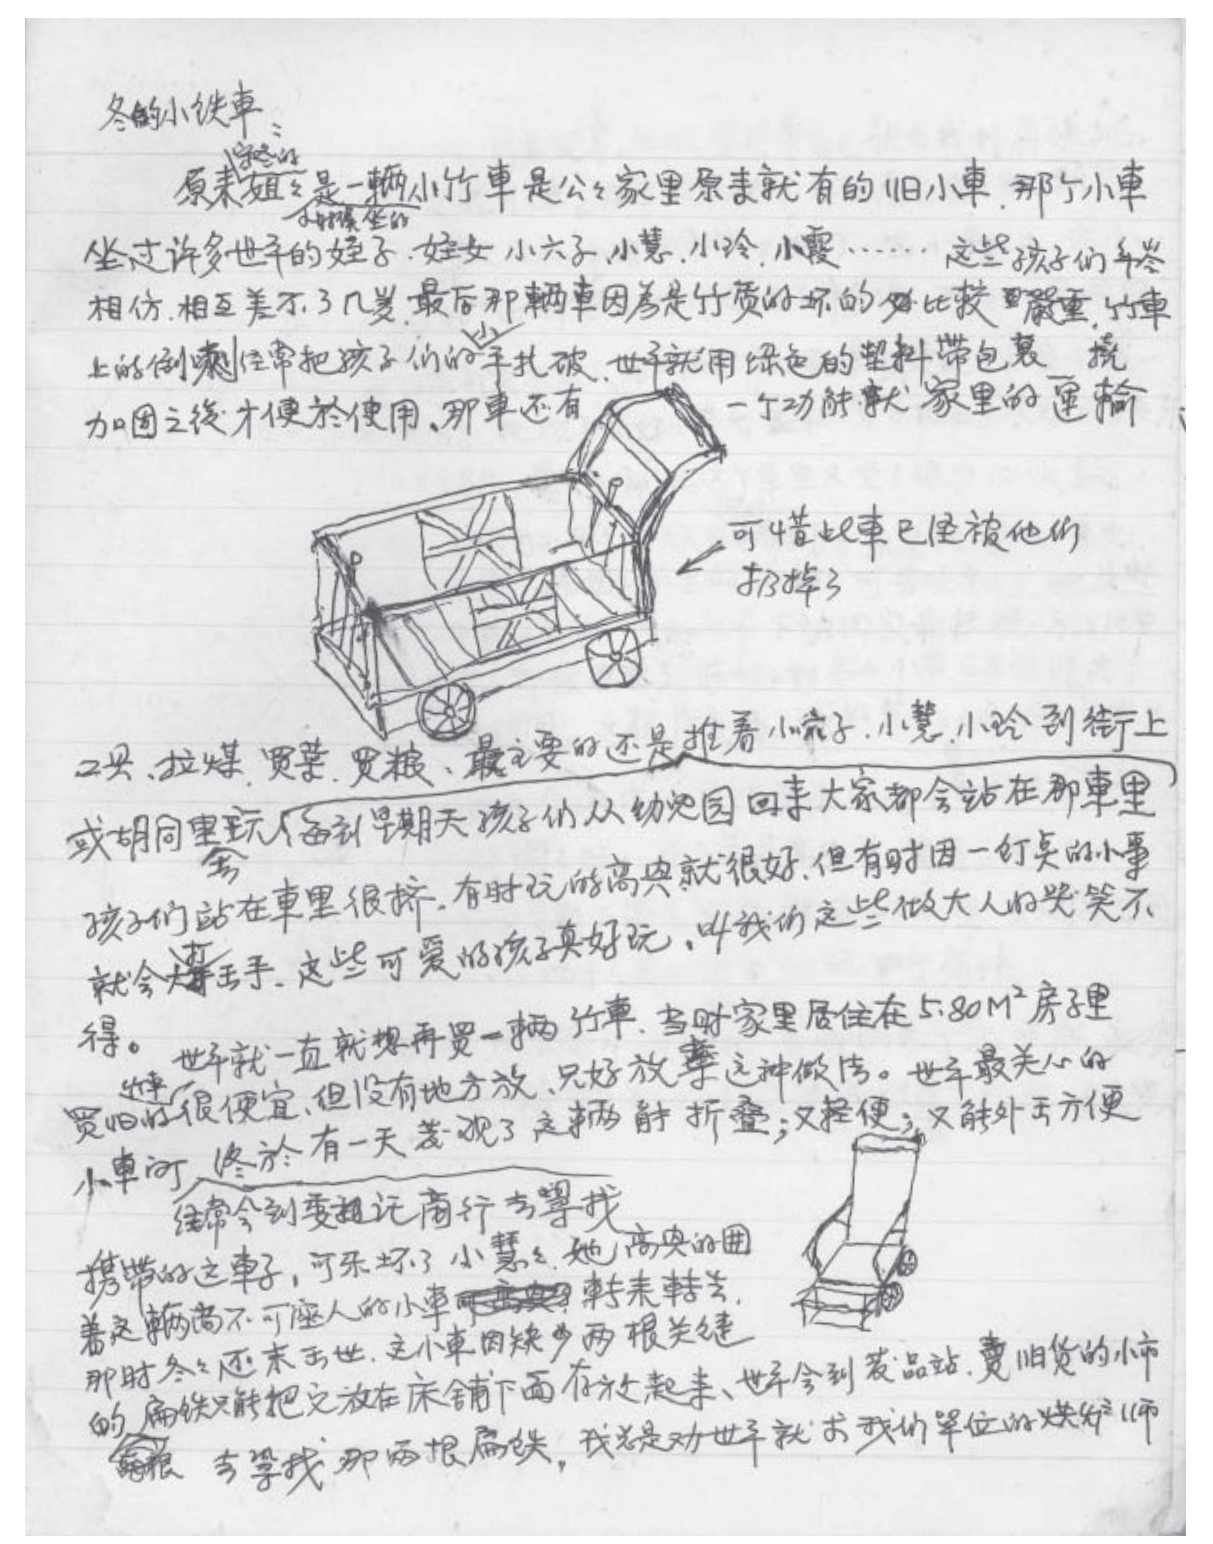 冬的小铁車
宋冬的
原来姐々是一輌小竹車是公々家里原来就有的旧小車.那个小車
小时候坐的
坐过许多世平的姪子.姪女 小六子.小慧.小玲.小霞…… 这些孩子们年岑
相仿.相互差不了几岁.最后那輌車因为是竹质的坏的比較嚴重.竹車
小
上的倒刺经常把孩子们的手扎破.世平就用绿色的塑料带包裹
加固之後才便於使用、那車还有 一个功能就 家里的運輸
可惜此車已经被他们
扔掉了
工具、拉煤.買菜.買粮、最主要的还是推着小六子.小慧.小玲到街上
或胡同里玩每到星期天孩子们从幼児园回来大家都会站在那車里
会
孩子们站在車里很挤.有时玩的高兴就很好.但有时因一钉点的小事
打
就会出手.这些可爱的孩子真好玩.叫我们这些做大人的哭笑不
得。
世平就一直就想再買一輌竹車.当时家里居住在5.80M²房子里
竹車
買旧的很便宜、但没有地方放、只好放棄这种做法。世平最关心的
小車 终於有一天发现了这輌能折叠;又轻便;又能外出方便
经常会到委託商行去尋找
携带的这車子,可乐坏了小慧々.她高兴的围
着这輌尚不可座人的小車轉来轉去.
那时冬々还未出世.这小車因缺少两根关键
的扁铁只能把它放在床舖下面存放起来、世平会到发品站.賣旧货的小市
去尋找那两根扁铁,我总是劝世平就求我们單位的烘炉师